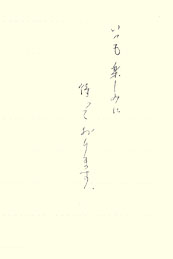 いつも楽しみに
待っております。